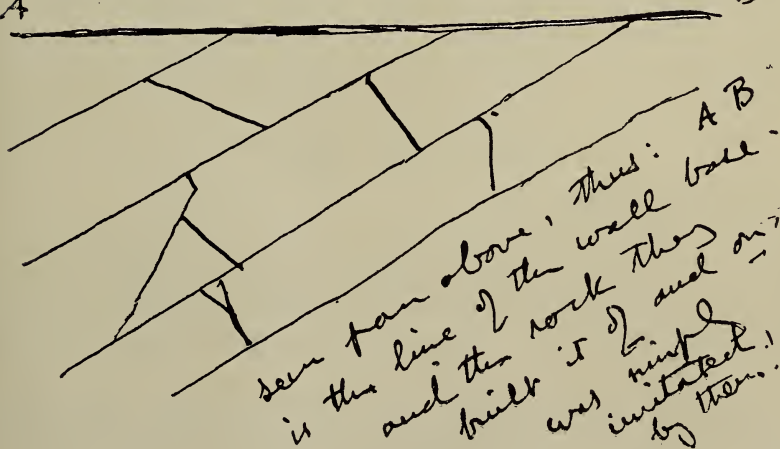 A B
seen from above, thus: A B
is the line of the wall base
and the rock they
built it of and on
was simply
imitated
by them.